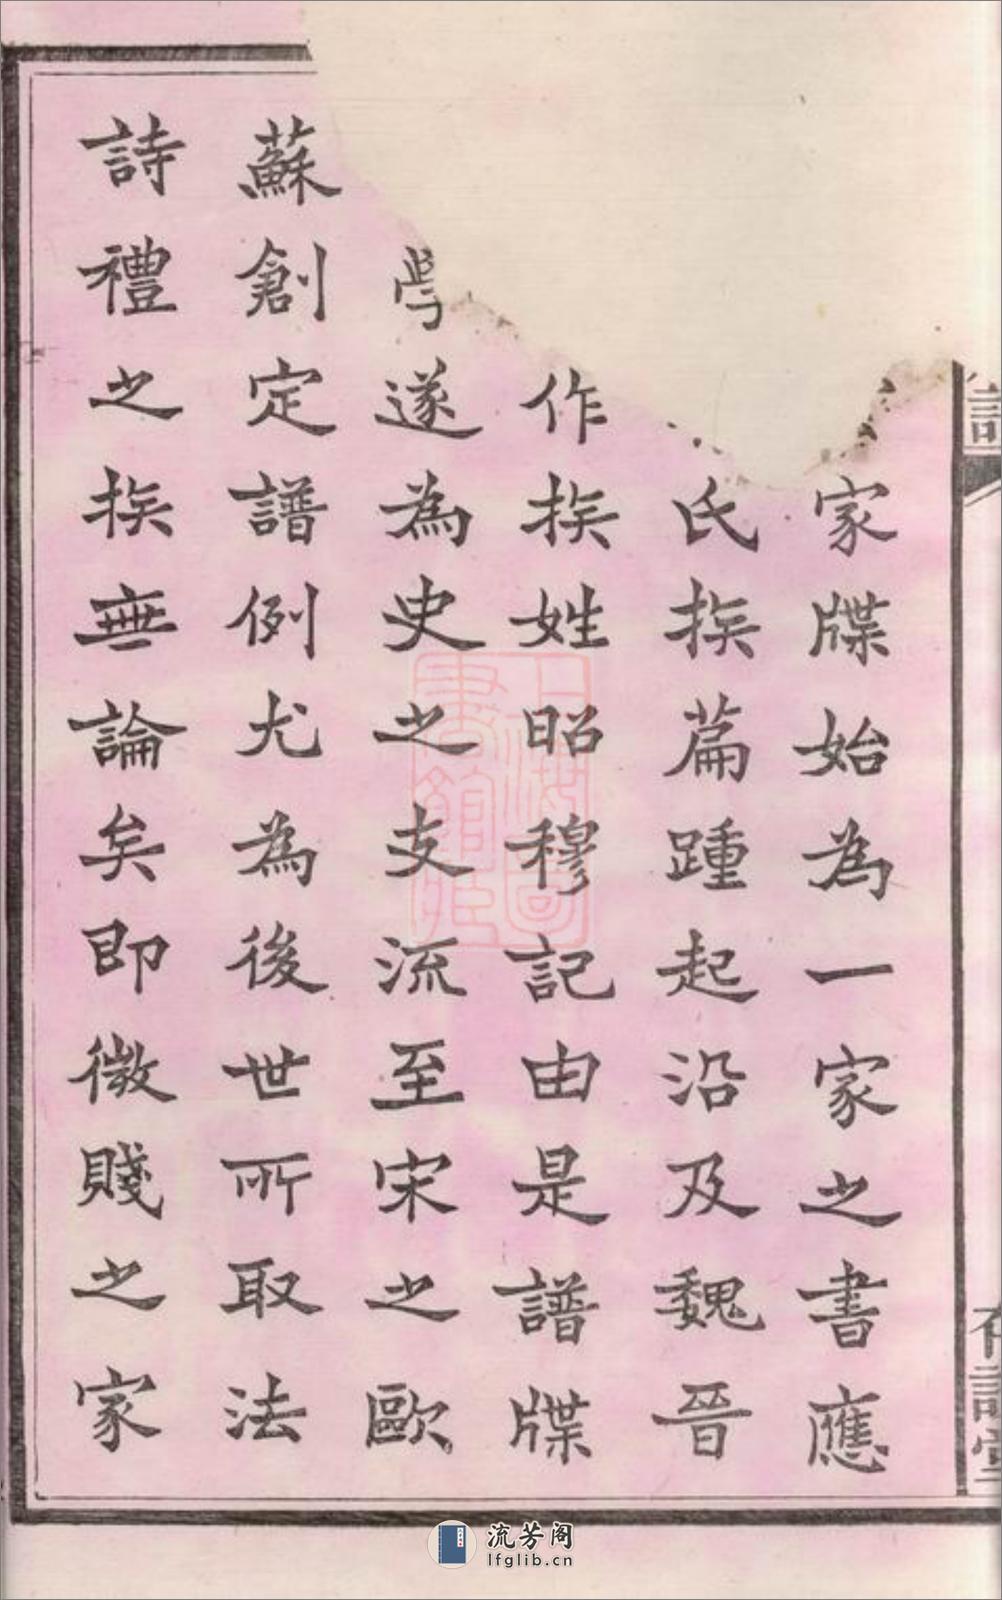 家牒始為一家之書應
氏族篇踵起沿及魏晉
作族姓昭穆記由是譜牒
學遂為史之支流至宋之歐
蘇創定譜例尤為後世所取法
詩禮之族無論矣即微賤之家
上海圖書館藏
流芳阁
lfglib.cn